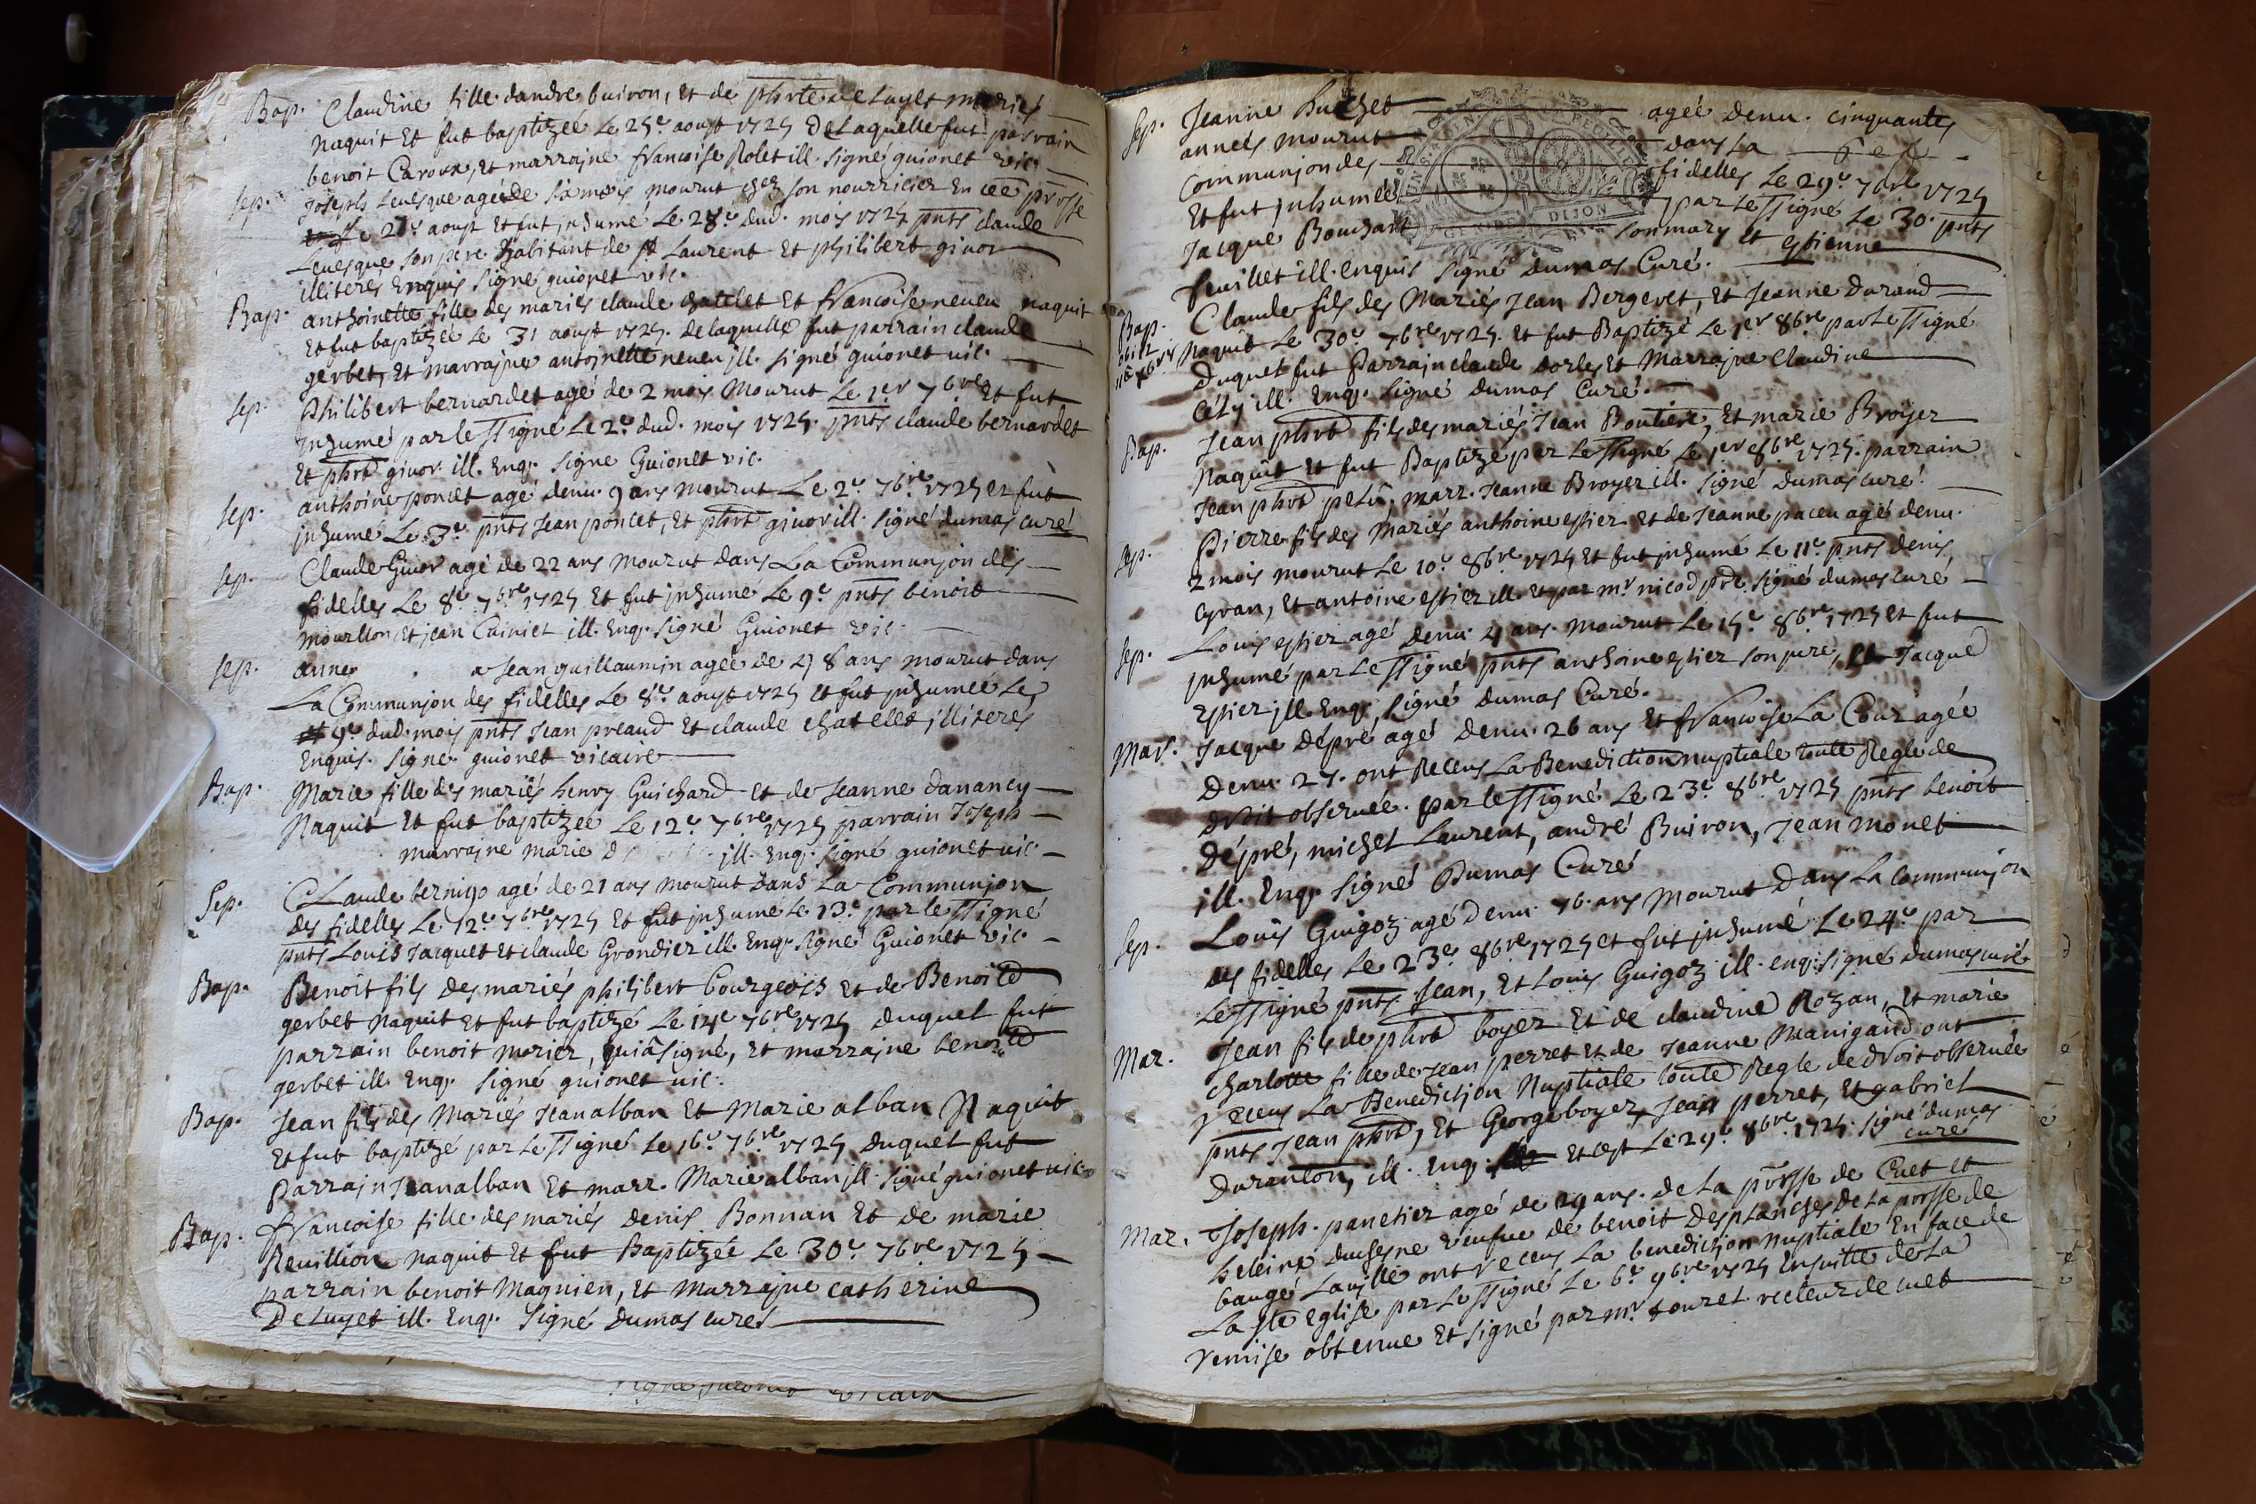 Bap. Claudine fille dandre buiron, Et de phrte de Luyet mariés
naquit Et fut baptizée Le 25e aoust 1725 De Laquelle fut parrain
benoit Carova, Et marrajne francoise Rolet ill. signé guionet vic.
Sep. Joseph Levesque agé de six mois mourut chez son nourricier En cee prosse
Le 27e aoust Et fut jnhumé Le 28e dud. mois 1725 pnts claude
Levesque son pere habitant de st Laurent Et philibert givor
illiterés Enquis signé guionet vic.
Bap. anthoinette fille des mariés claude chatelet Et francoise neveu naquit
Et fut baptizée Le 31 aoust 1725. de laquelle fut parrain claude
gerbet, Et marrajne antojnette neveu jll. signé guionet vic.
Sep. Philibert bernardet agé de 2 mois Mourut Le 1er 7bre Et fut
jnhumé par le ssigné Le 2e dud. mois 1725. pnts claude bernardet
Et phrt givor. ill. Enq. signe Guionet vic.
Sep. anthoine poncet agé denv. 9 ans mourut Le 2e 7bre 1725 et fut
jnhumé Le 3e pnts Jean poncet, Et phrt givor ill. signé dumas curé
Sep. Claude Givor agé de 22 ans mourut dans La Communjon des
fidelles Le 8e 7bre 1725 Et fut jnhumé Le 9e pnts benoit
mourllon Et jean Cuiniet ill. Enq. signé Guionet vic.
Sep. anne a Jean guillaumin agée de 48 ans mourut dans
La Communjon des fidelles Le 8e aoust 1725 Et fut jnhumée Le
9e dud. mois pnts Jean preaud Et claude chatelet jlliterés
Enquis. signé guionet vicaire
Bap. Marie fille des mariés henry Guichard Et de Jeanne danancy
Naquit Et fut baptizée Le 12e 7bre 1725 parrain Joseph
marrajne marie jll. Enq. signé guionet vic.
Sep. Claude bernigo agé de 21 ans mourut dans La Communjon
des fidelles Le 12e 7bre 1725 Et fut jnhumé Le 13e par le ssigné
pnts Louis Jacquet Et claude Grondier ill. Enq. signé Guionet vic.
Bap. Benoit fils des mariés philibert bourgeois Et de Benoite
gerbet naquit Et fut baptizé Le 14e 7bre 1725 Duquel fut
parrain benoit morier, qui a signé, Et marrajne benoite
gerbet ill. Enq. signé guionet vic.
Bap. Jean fils des Mariés Jean alban Et Marie alban Naquit
Et fut baptizé par Le ssigné Le 16e 7bre 1725 Duquel fut
parrajn Jean alban Et marr. Marie alban jll. signé guionet vic.
Bap. francoise fille des mariés denis Bonnan Et de marie
Revillion naquit Et fut Baptizée Le 30e 7bre 1725
parrain benoit Magnien, Et Marrajne catherine
De Luyet ill. Enq. signé dumas curé
signé guionet vicair
Sep. Jeanne Buchet agée denv. cinquante
années mourut dans La
Communjon des fidelles Le 29e 7bre 1725
Et fut jnhumée par Le ssigné Le 30. pnts
Jacque Bouchart son mary Et estienne
feuillet ill. Enquis signé dumas Curé.
Bap. Claude fils des Mariés Jean Bergeret, Et Jeanne Durand
Naquit Le 30e 7bre 1725. Et fut Baptizé Le 1er 8bre par Le ssigné
Duquel fut Parrain claude Dorles Et Marrajne Claudine
Cély ill. Enq. signé dumas Curé.
Bap. Jean phrt fils des mariés Jean Boutier, Et marie Broyer
Naquit Et fut Baptizé par Le ssigné Le 1er 8bre 1725. parrain
Jean phrt petit. marr. Jeanne Broyer ill. signé dumas curé.
Sep. Pierre fils des Mariés anthoine estier Et de Jeanne paceu agé denv.
2 mois mourut Le 10e 8bre 1725 Et fut jnhumé Le 11e pnts denis
cyvan, Et antoine estier ill. Et par mr nicod ptre signé dumas curé
Sep. Louis estier agé denv. 4 ans. mourut Le 15e 8bre 1725 Et fut
jnhumé par Le ssigné pnts anthoine estier son pere, Jacque
estier jll. Enq. signé dumas Curé.
Mar. Jacque Dépré agé denv. 26 ans Et francoise La Cour agée
denv. 25. ont Receus La Benediction nuptiale toute Regle de
droit observée. par le ssigné Le 23e 8bre 1725 pnts benoit
dépré, michel Laurent, andré Buiron, Jean monet
ill. Enq. signé Dumas Curé
Sep. Louis Guigoz agé denv. 76. ans mourut Dans La Communjon
des fidelles Le 23e 8bre 1725 et fut jnhumé Le 24e par
Le ssigné pnts Jean, Et Louis Guigoz ill. enq. signé dumas curé
Mar. Jean fils de phrt boyer Et de claudine Rozan, Et marie
charlotte fille de Jean perret Et de Jeanne Manigand ont
receus La Benedictjon Nuptiale toute Regle de droit observée
pnts Jean phrt, Et George boyer, Jean perret, Et gabriel
Duranton, ill. Enq. Et cest Le 29e 8bre 1725. signé dumas
curé
Mar. Joseph panetier agé de 29 ans. de La porsse de Cuet Et
heleine duchesne veufve de benoit desplanches de La porsse de
baugé Laville ont receus La benedictjon nuptiale En face de
La ste Eglise par Le ssigné Le 6e 9bre 1725 Ensuitte de La
remise obtenue Et signé par mr touret recteur de cuet
DIJON